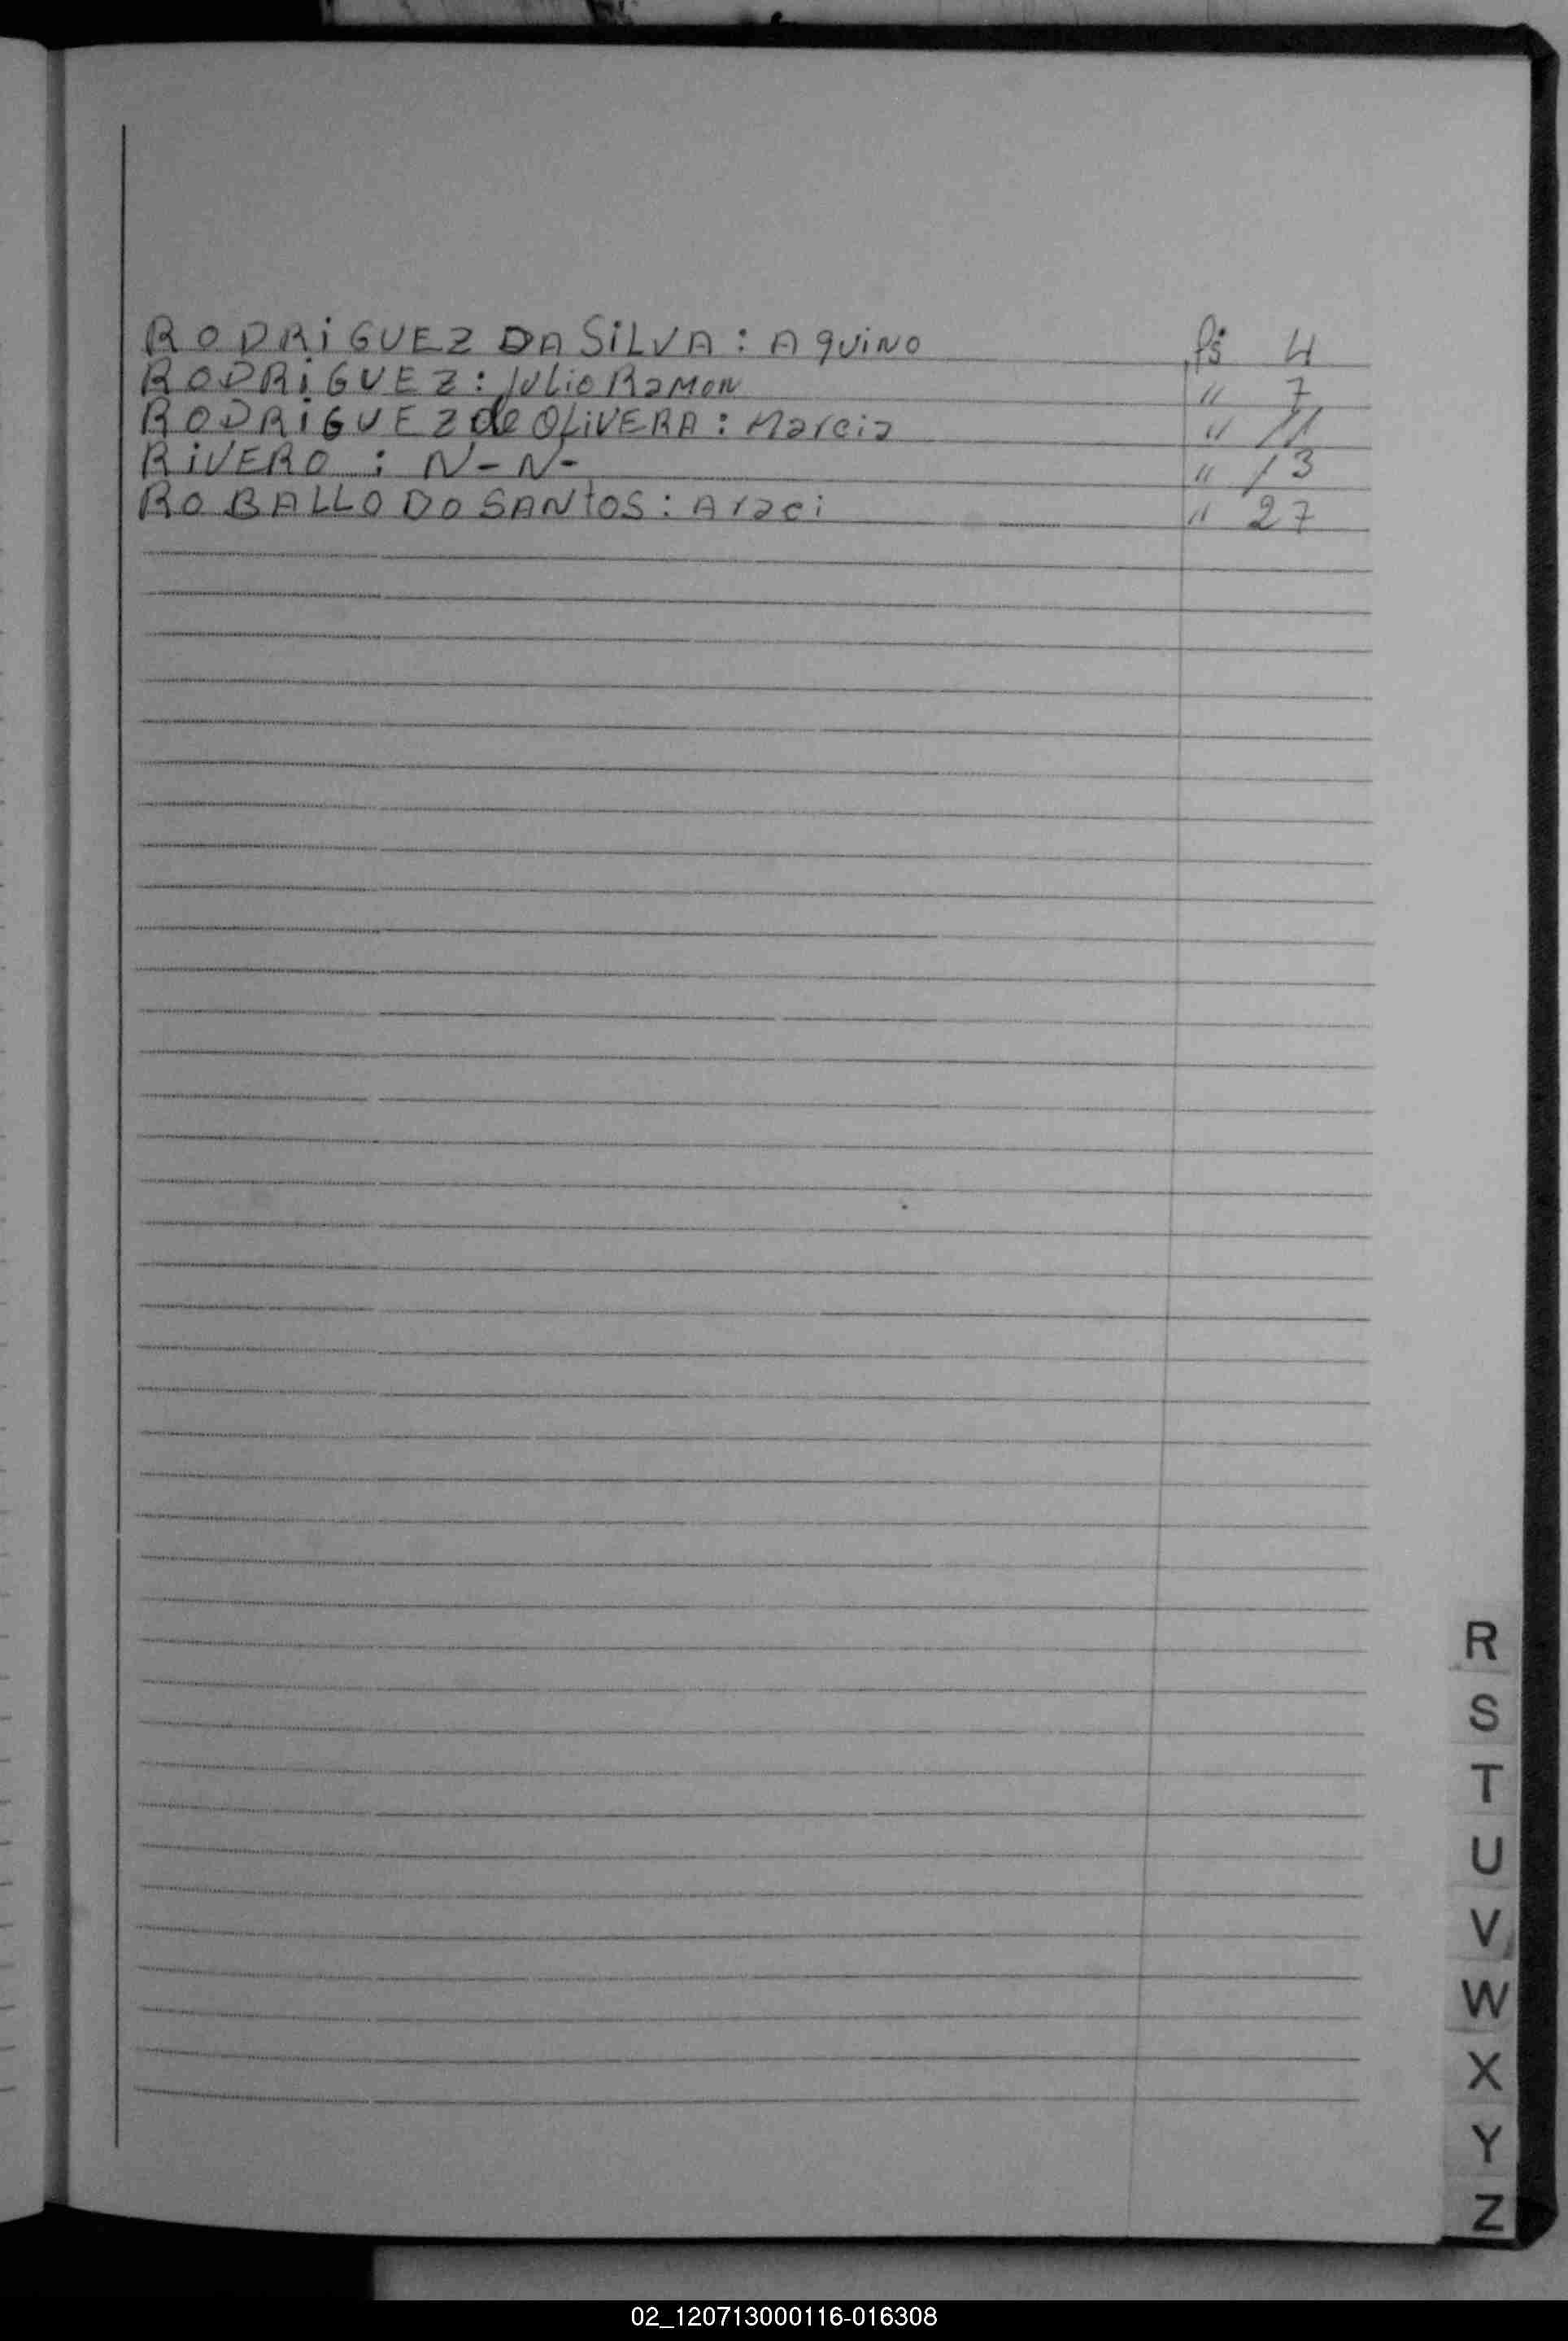 RODRiGUEZ DA SiLVA : Aquino fs 4
RODRiGUEZ : Julio Ramon " 7
RODRiGUEZ de OLiVERA : Marcia " 11
RiVERO : N-N- " 13
ROBALLO DO SANtOS : Araci " 27
R
S
T
U
V
W
X
Y
Z
02_120713000116-016308